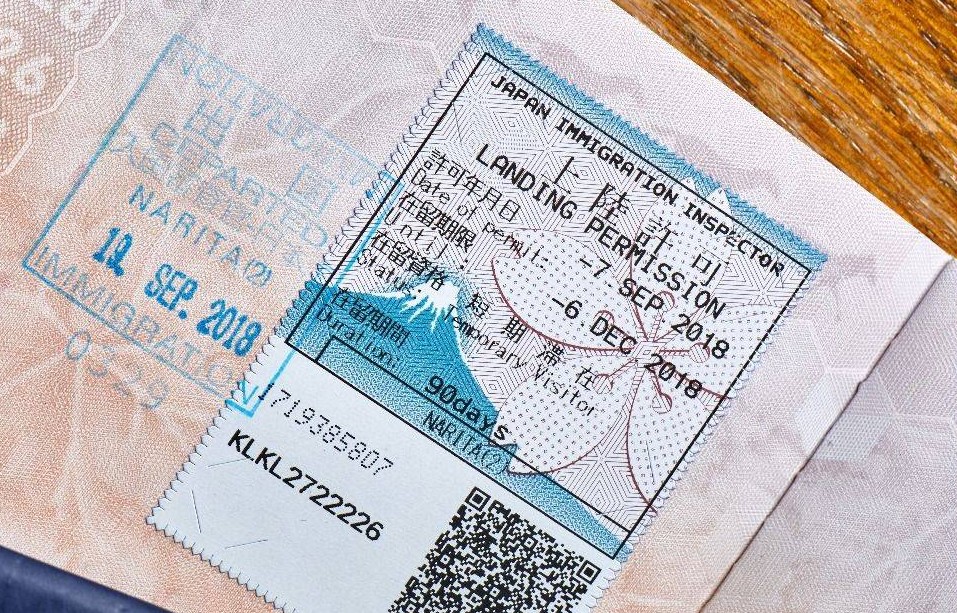 JAPAN IMMIGRATION INSPECTOR
上陸許可
LANDING PERMISSION
許可年月日
Date of permit: -7. SEP. 2018
在留期限
Until: -6. DEC. 2018
在留資格 短期滞在
Status: Temporary Visitor
在留期間
Duration: 90days
NARITA(2)
1719385807
KLKL2722226
出国
DEPARTED
NARITA(2)
SEP. 2018
IMMIGRATION
0329